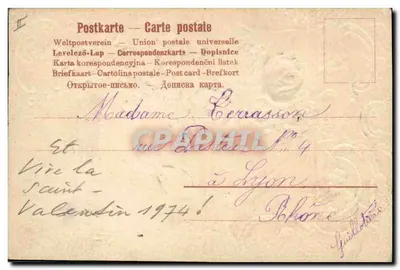 II
Postkarte — Carte postale
Weltpostverein — Union postale universelle
Levelező-Lap — Correspondenzkarte — Dopisnice
Karta korespondencyjna — Korespondenční lístek
Briefkaart — Cartolina postale — Post card — Brefkort
Открытое-письмо. — Дописна карта.
Madame Terrasson
rue Pasteur N° 4
à Lyon
Rhône
Et
Vive la
Saint-
Valentin 1974!
Guillotière
CPAPHIL